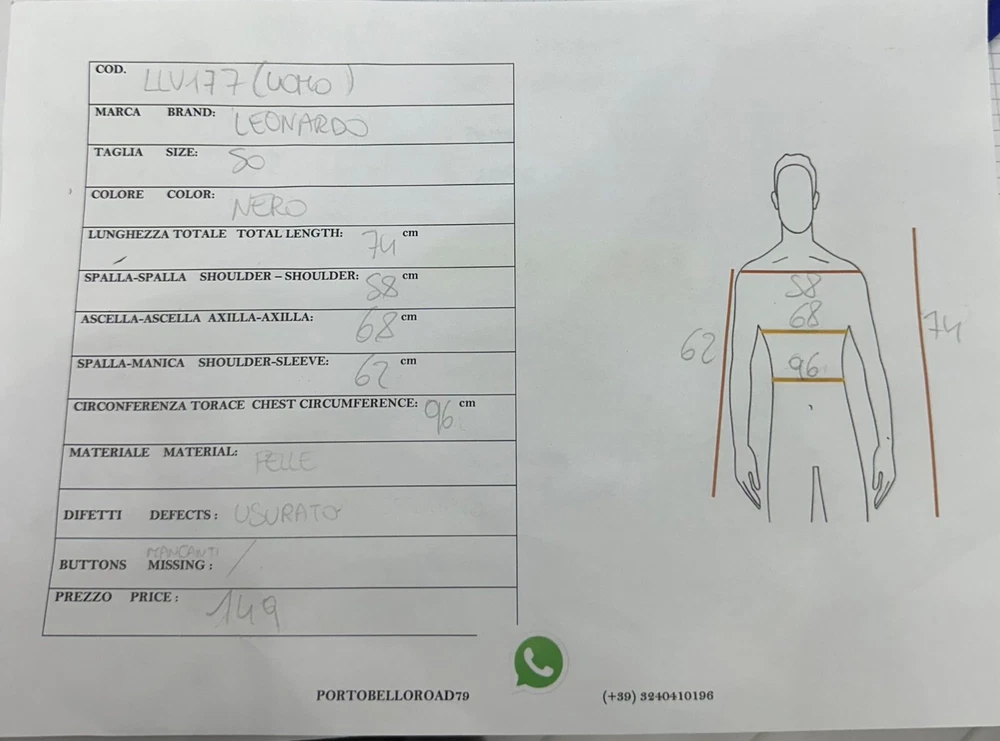 COD. LLV177 (UOMO)
MARCA BRAND: LEONARDO
TAGLIA SIZE: 50
COLORE COLOR: NERO
LUNGHEZZA TOTALE TOTAL LENGTH: 74 cm
SPALLA-SPALLA SHOULDER – SHOULDER: 58 cm
ASCELLA-ASCELLA AXILLA-AXILLA: 68 cm
SPALLA-MANICA SHOULDER-SLEEVE: 62 cm
CIRCONFERENZA TORACE CHEST CIRCUMFERENCE: 96 cm
MATERIALE MATERIAL: PELLE
DIFETTI DEFECTS: USURATO
MANCANTI
BUTTONS MISSING: /
PREZZO PRICE: 149
58
68
62
74
96
PORTOBELLOROAD79 (+39) 3240410196